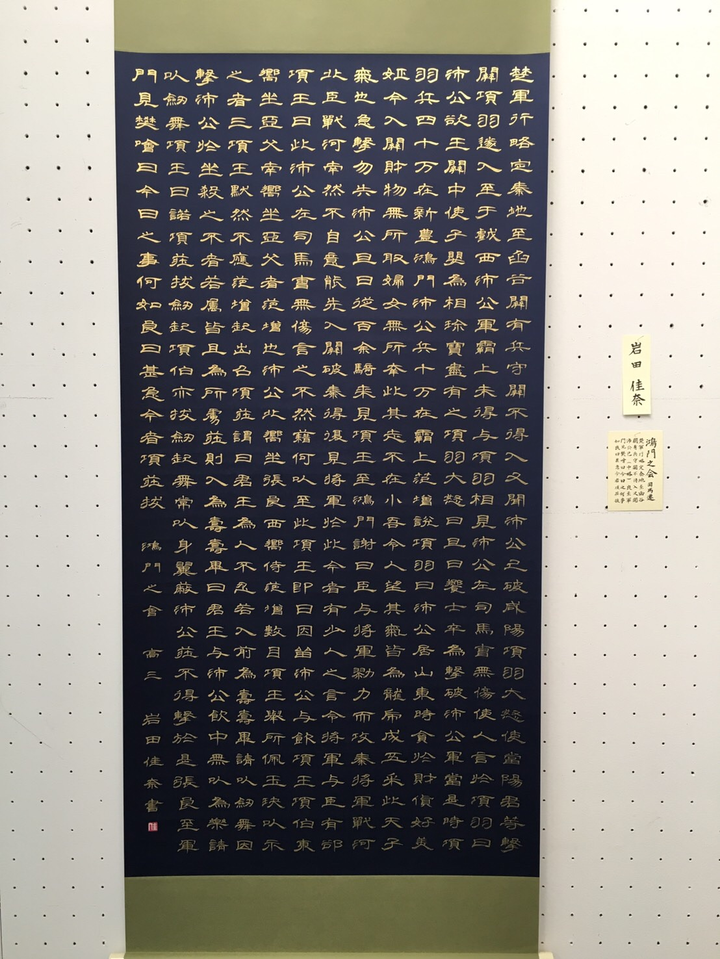 楚軍行略定秦地至函谷關有兵守關不得入又聞沛公已破咸陽項羽大怒使當陽君等擊
關項羽遂入至于戲西沛公軍霸上未得与項羽相見沛公左司馬曹無傷使人言於項羽曰
沛公欲王關中使子嬰為相珍寶盡有之項羽大怒曰旦日饗士卒為擊破沛公軍當是時項
羽兵四十万在新豊鴻門沛公兵十万在霸上范增說項羽曰沛公居山東時貪於財貨好美
姬今入關財物無所取婦女無所幸此其志不在小吾令人望其氣皆為龍虎成五采此天子
氣也急擊勿失沛公旦日從百余騎来見項王至鴻門謝曰臣与將軍勠力而攻秦將軍戰河
北臣戰河南然不自意能先入關破秦得復見將軍於此今者有小人之言令將軍与臣有郤
項王曰此沛公左司馬曹無傷言之不然籍何以至此項王即日因留沛公与飲項王項伯東
嚮坐亞父南嚮坐亞父者范增也沛公北嚮坐張良西嚮侍范增數目項王舉所佩玉玦以示
之者三項王默然不應范增起出召項莊謂曰君王為人不忍若入前為壽壽畢請以劒舞因
擊沛公於坐殺之不者若屬皆且為所虜莊則入為壽壽畢曰君王与沛公飲中無以為樂請
以劒舞項王曰諾項莊拔劒起項伯亦拔劒起舞常以身翼蔽沛公莊不得擊於是張良至軍
門見樊噲曰今日之事何如良曰甚急今者項莊拔 鴻門之會 高三 岩田佳奈書
岩田佳奈
鴻門之会 司馬遷